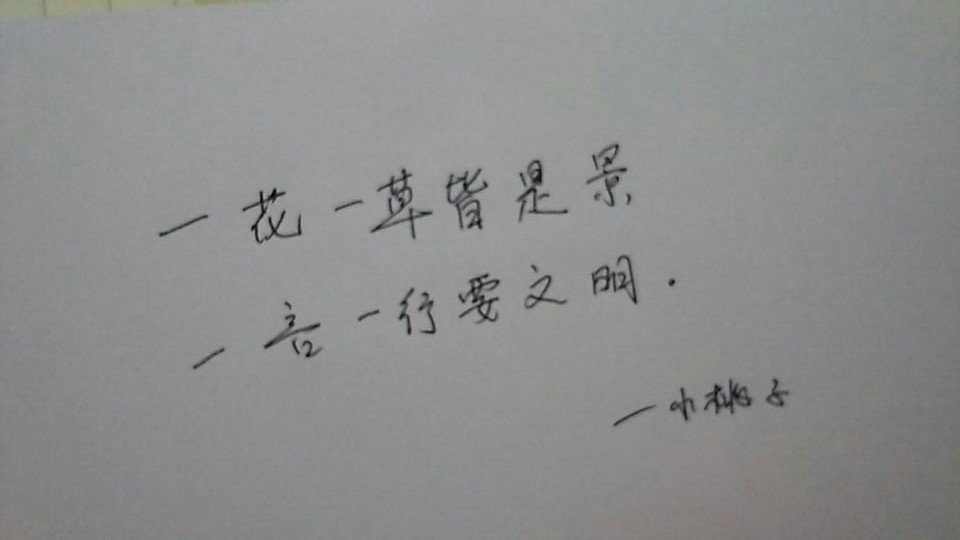 一花一草皆是景
一言一行要文明.
—小桃子